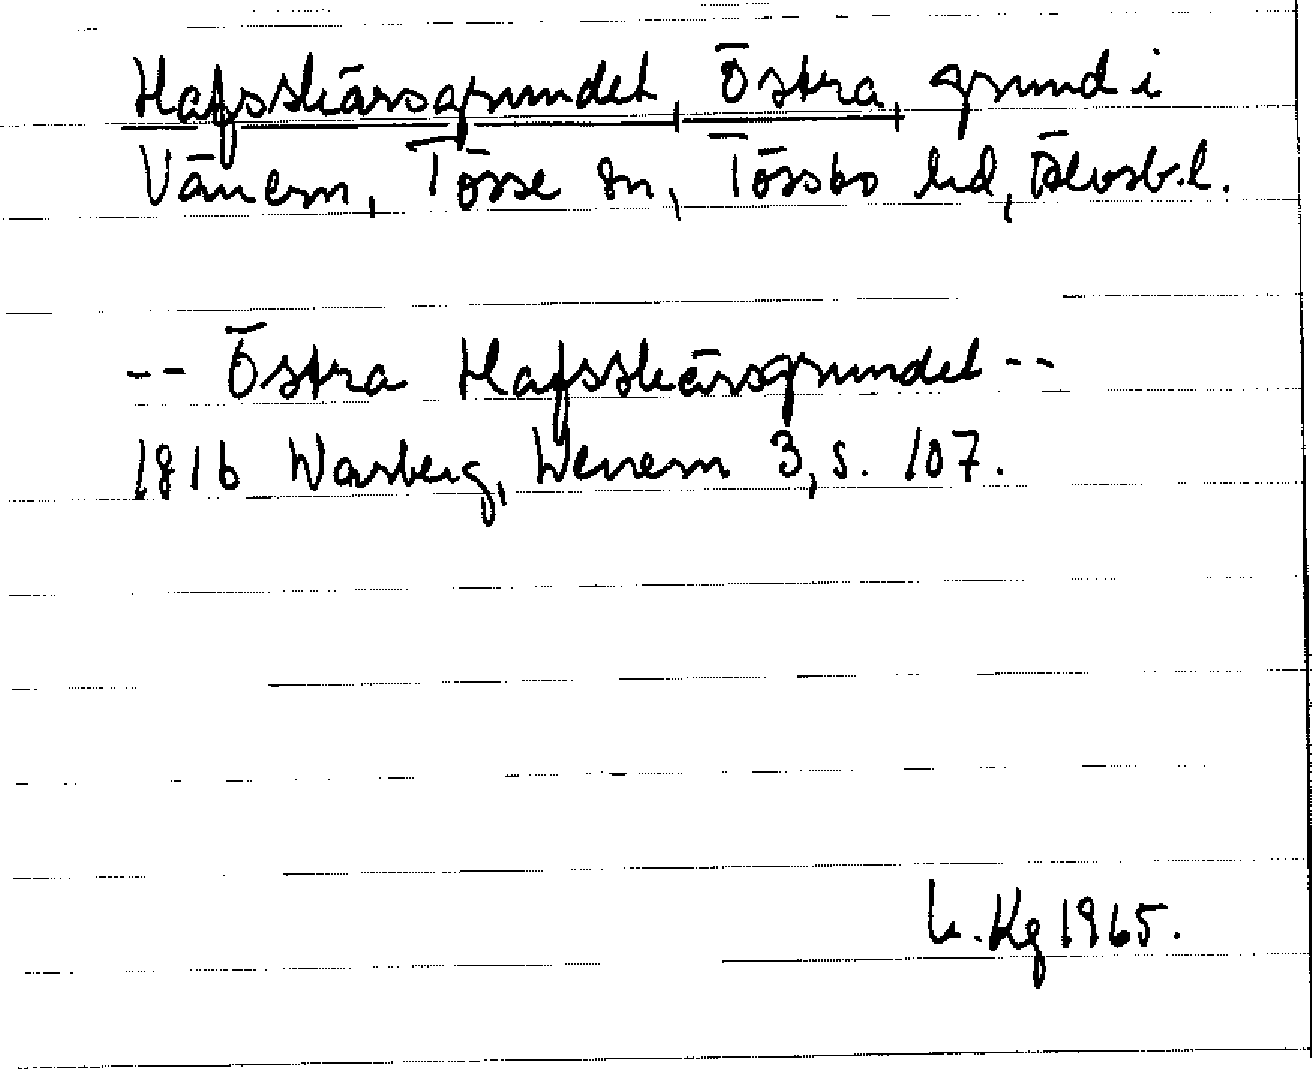 Hafsskärsgrundet, Östra, grund i
Vänern, Tösse sn, Tössbo hd, Älvsb. l.
-- Östra Hafsskärsgrundet --
1816 Warberg, Wenern 3, s. 107.
Kg 1965.